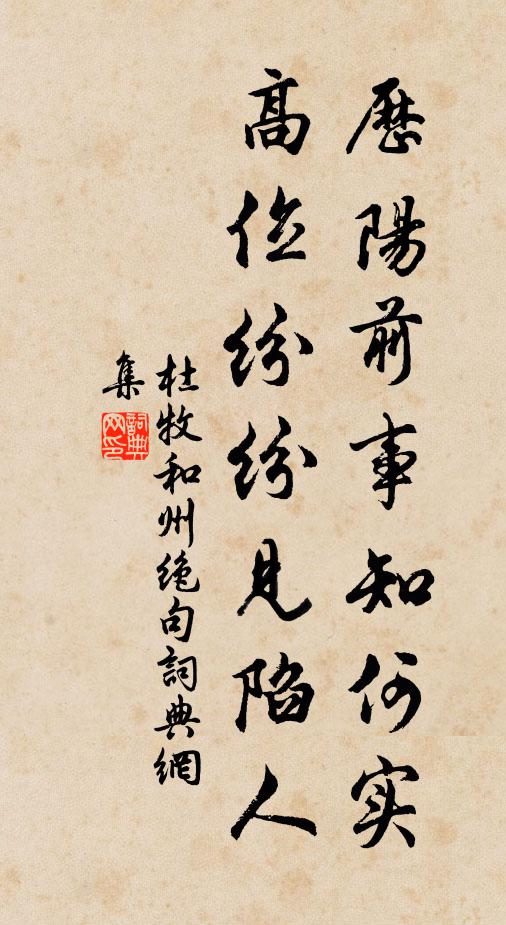 歷陽前事知何实
高位紛紛見陷人
杜牧和州绝句詞典網
集
詞典網印